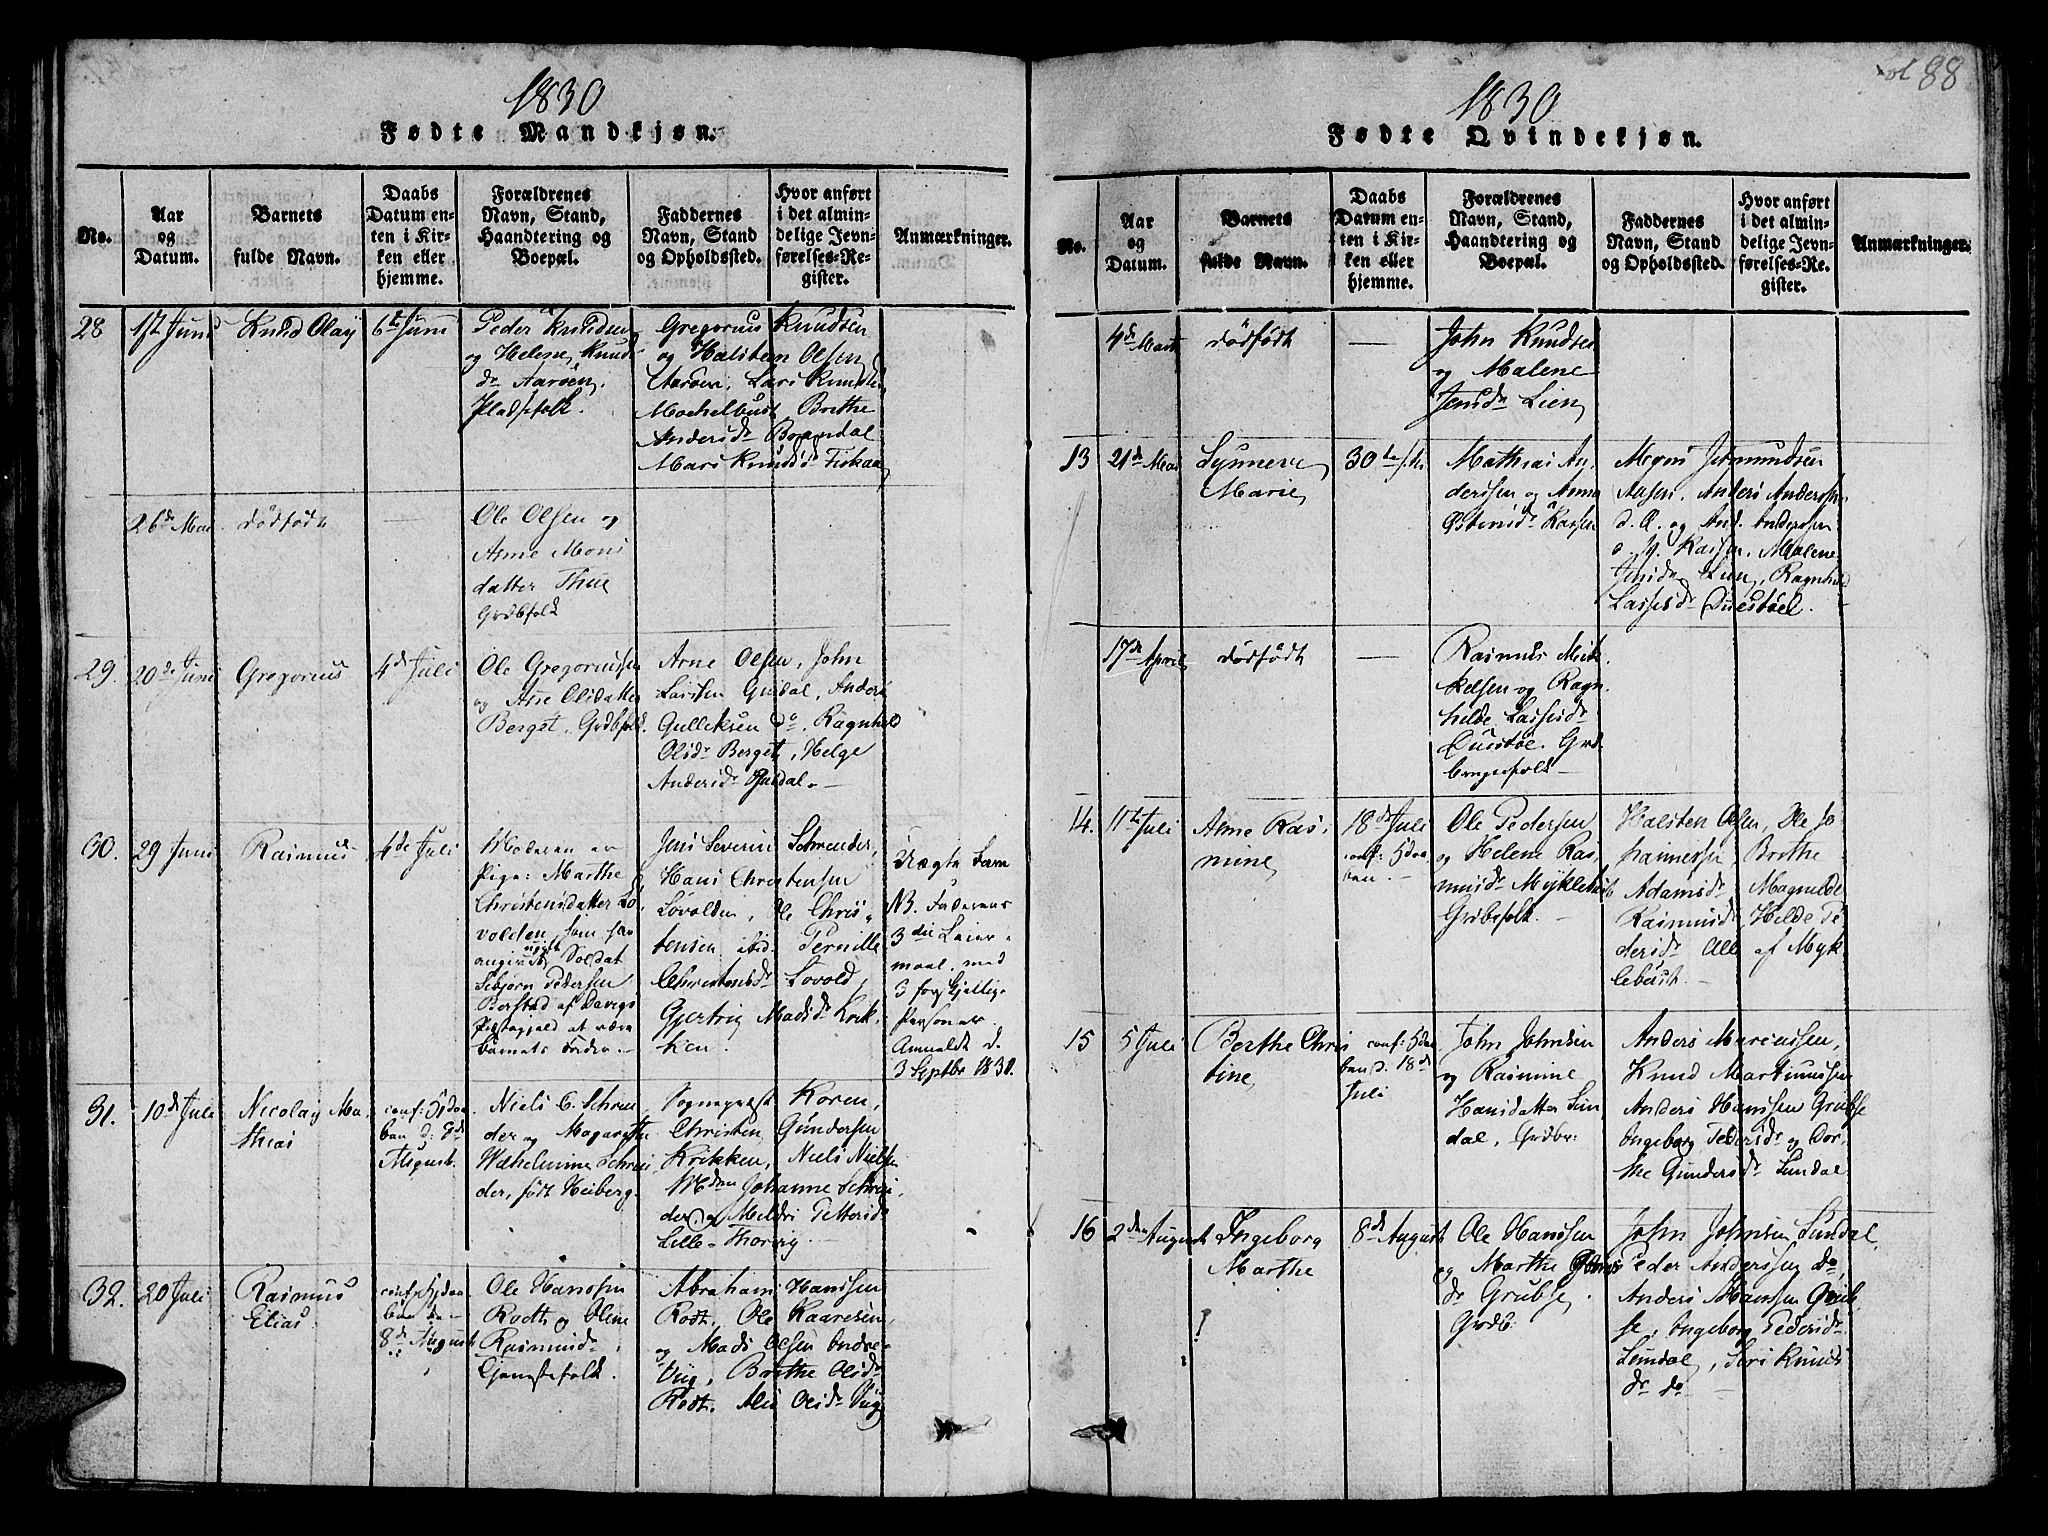 1830
Fødte Mandkjøn.
No.
Aar
og
Datum.
Barnets
fulde Navn.
Daabs
Datum en-
ten i Kir-
ken eller
hjemme.
Forældrenes
Navn, Stand,
Haandtering og
Boepæl.
Faddernes
Navn, Stand
og Opholdssted.
Hvor anført
i det almin-
delige Jevn-
førelses-Re-
gister.
Anmærkninger.
28
17 Juni
Knud Olay
6te Juni
Peder Knudsen
og Helene Knuds
dr Aarøen,
Pladsfolk.
Gregorius Knudsen
og Halsten Olsen
Aarøen, Lars Knuds
Brethe
Andersdr
Mari Knudsdr Fiskaa
26de Mai
dødfødt
Ole Olsen og
Anne Mons
datter Thue
Grdbfolk
29.
20de Juni
Gregorius
4de Juli
Ole Gregoriussen
og Ane Olsdatter
Berget, Grdbfolk.
Arne Olsen, John
Larsen Gusdal, Anders
Gulleksen do, Ragnhild
Olsdr Berget, Helge
Andersdr Gusdal.
30.
29 Juni
Rasmus
4de Juli
Moderen er
Pige: Marthe
Christensdatter Lø
volden, som har
angivet Soldat
Sebjørn Pedersen
Borstad af Davigs
Præstegjeld at være
Barnets Fader.
Jens Severin Schrender,
Hans Christensen
Løvolden, Ole Chris-
tensen ibid. Pernille
Christensdr Løvold,
Gjertrug Madsdr Krik-
ken.
Uægte barn
NB. Faderens
3die Leier-
maal, med
3 forskjellige
Personer.
Anmeldt d.
3 Septbr 1830.
31.
10de Juli
Nicolay Ma-
thias
conf: Hjdaa
ben d: 8de
August.
Niels C. Schrun
der og Magarethe
Wilhelmine Schreu
der, født Heiberg.
Sogneprest Koren,
Christen Gundersen
Krikken, Niels Nielsen
Mdme Johanne Schreu
der og Meldri Pettersdr
Lille-Thorvig.
32.
20 Juli
Rasmus
Elias.
conf: Hjdaa
ben d
8de August
Ole Hanssen
Rodt og Oline
Rasmusdr
Tjenestefolk.
Abraham Hanssen
Rodt, Ole Kaaresen
og Mads Olsen Indre-
Vig, Brethe Olsdr
Rodt. Ales Olsdr Vig
1830
88
Fødte Qvindekjøn.
No.
Aar
og
Datum.
Barnets
fulde Navn.
Daabs
Datum en-
ten i Kir-
ken eller
hjemme.
Forældrenes
Navn, Stand,
Haandtering og
Boepæl.
Faddernes
Navn, Stand
og Opholdssted.
Hvor anført
i det almin-
delige Jevn-
førelses-Re-
gister.
Anmærkninger.
4de Marts
dødfødt
John Knudsen
og Malene
Jensdr Lien
13
21de Mai
Synneve
Marie
30te
Mathias An
derssen og Anna
Østensdr Kassen
Mogns Jetmundsen
Aasen. Anders Anderssen
d. Æ. og And. Anderssen
d. Y. Kassen. Malene
Jensdr Lien, Ragnhild
Lassesdr Duestøel.
17de April
dødfødt
Rasmus Mik
kelsen og Ragn
hilde Lassesdr
Duestøl. Grd
brugerfolk
14.
11te Juli
Anne Ras-
mine
18de Juli
conf: Hdaa
ben.
Ole Pedersen
og Helene Ras
musdr Myklebust
Grdbfolk.
Halsten Olsen, Ole Jo
hannessen, Brethe
Adamsdr Magnilde
Rasmusdr, Helde Pe
dersdr Alle af Myk
lebust.
15
5 Juli
Berthe Chris
tine
conf: Hdaa
ben d. 18de
Juli
John Johnsen
og Rasmine
Hansdatter Sun
dal, Grdbr.
Anders Mariussen,
Knud Martinussen
Anders Hanssen Grubse
Ingeborg Pedersdr og Dor-
the Gundersdr Sundal
16
2den August
Ingeborg
Marthe
8de August
Ole Hanssen
og Marthe
dr Grubse.
Grdb.
John Johnsen Sundal,
Peder Anderssen do,
Anders Hanssen Grub
se, Ingeborg Pedersdr
Sundal, Siri Knuds
dr do